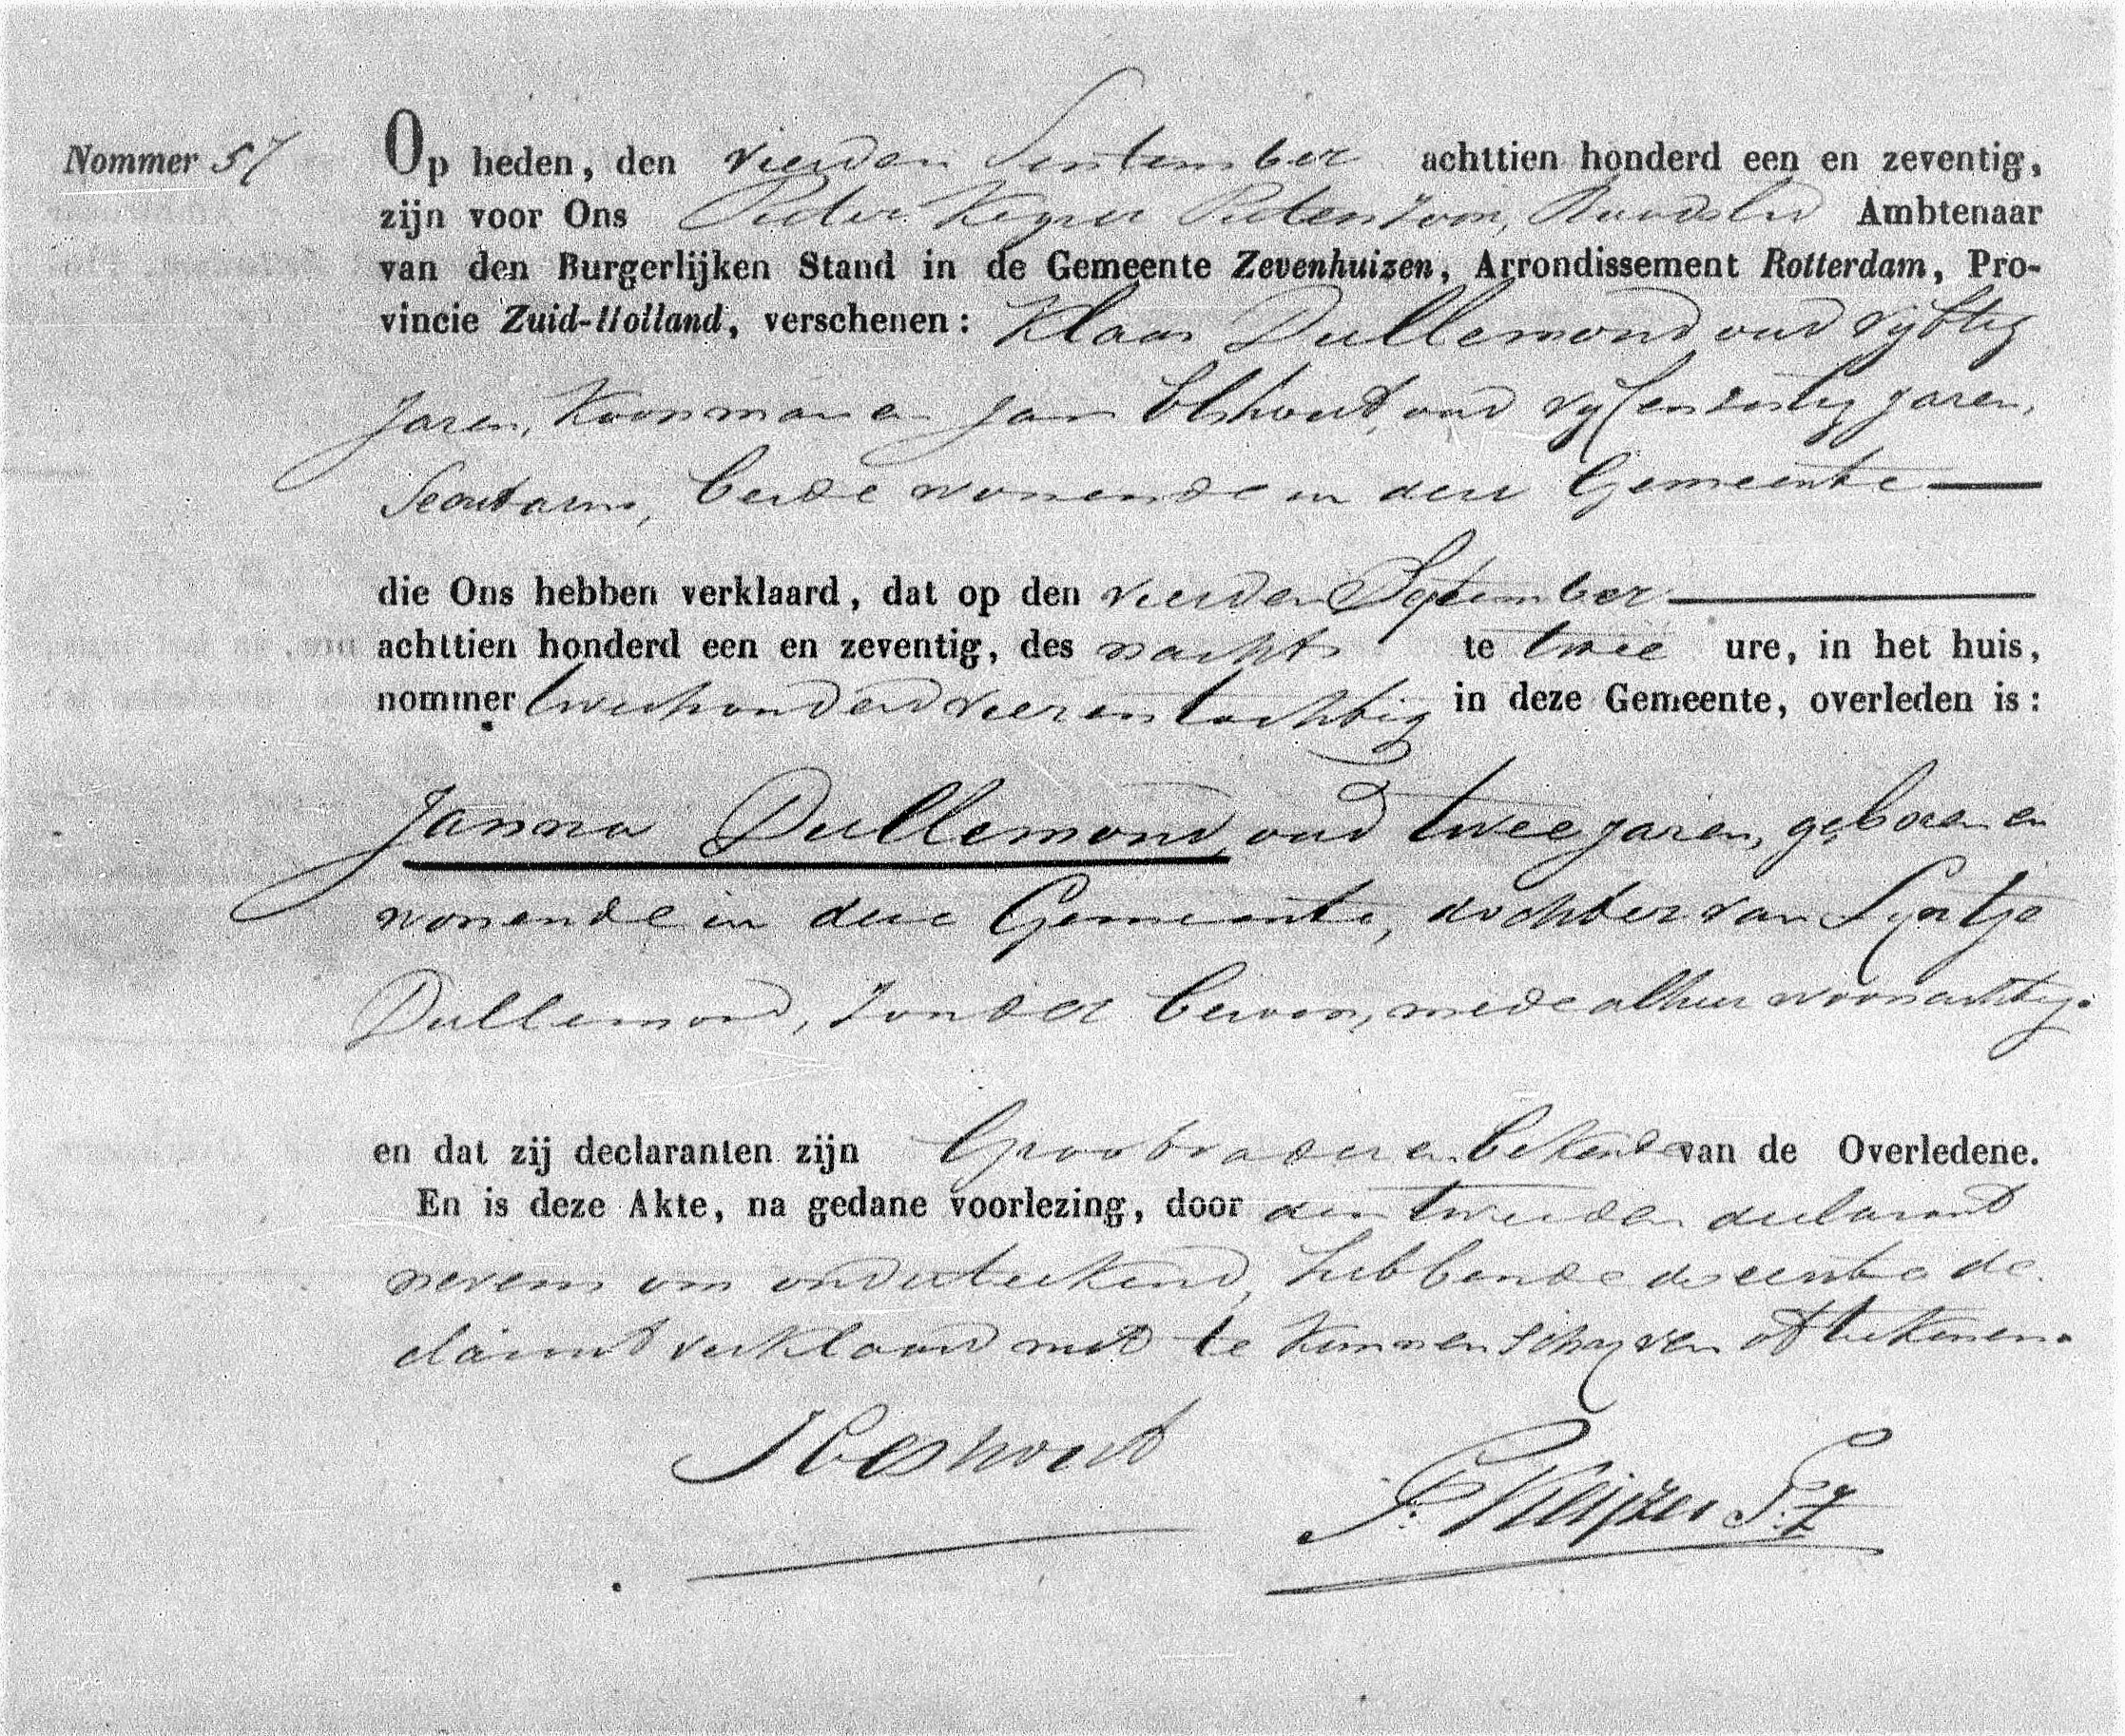 Nommer 57
Op heden, den vierden September achttien honderd een en zeventig,
zijn voor Ons Pieter Keyzer Pieterszoon, Raadslid Ambtenaar
van den Burgerlijken Stand in de Gemeente Zevenhuizen, Arrondissement Rotterdam, Pro-
vincie Zuid-Holland, verschenen: Klaas Dullemond oud vijftig
jaren, Koopman en Jan Elshout, oud vijfenzestig jaren,
Secretaris, beide wonende in deze Gemeente
die Ons hebben verklaard, dat op den vierden September
achttien honderd een en zeventig, des nachts te twee ure, in het huis,
nommer tweehonderd vierentachtig in deze Gemeente, overleden is:
Janna Dullemond, oud twee jaren, geboren en
wonende in deze Gemeente, dochter van Sijntje
Dullemond, zonder beroep, mede alhier woonachtig.
en dat zij declaranten zijn Grootvader en bekende van de Overledene.
En is deze Akte, na gedane voorlezing, door den tweeden declarant
nevens ons onderteekend, hebbende de eerste de-
clarant verklaard niet te kunnen schrijven of teekenen.
J Elshout
P. Keijzer P.z